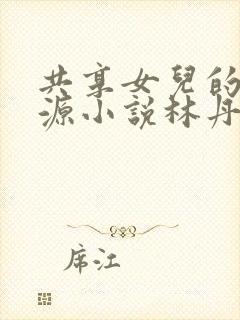 共享女兒的
源小說林丹
席江